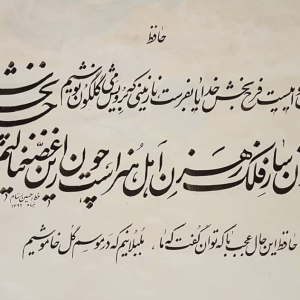 حافظ
فرح بخش خدایا بفرست نازنینی که برویش می گلگون نوشیم
ساز فلک رهزن اهل هنر است چون ازین غصه ننالیم
حافظ این حال عجب با که توان گفت که ما بلبلانیم که در موسم گل خاموشیم